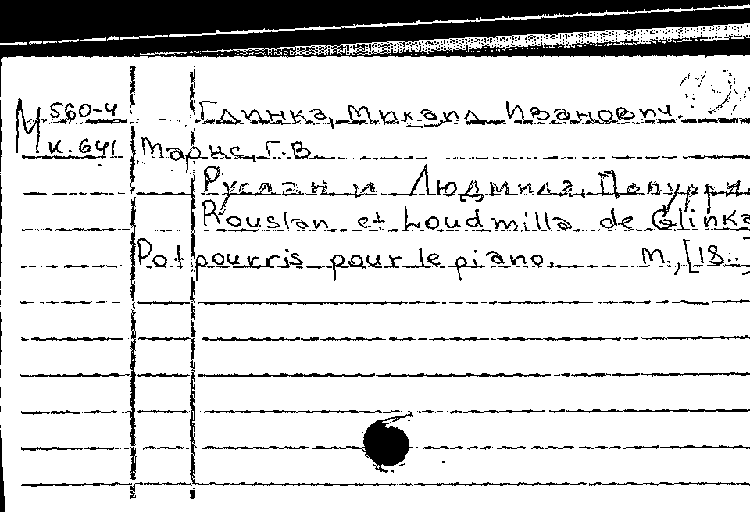 М 560-4 Глинка, Михаил Иванович.
К. 641 Маркс, Г.В.
Руслан и Людмила. Попурри.
Rouslan et Loudmilla de Glinka
Potpourris pour le piano. М., [18..]